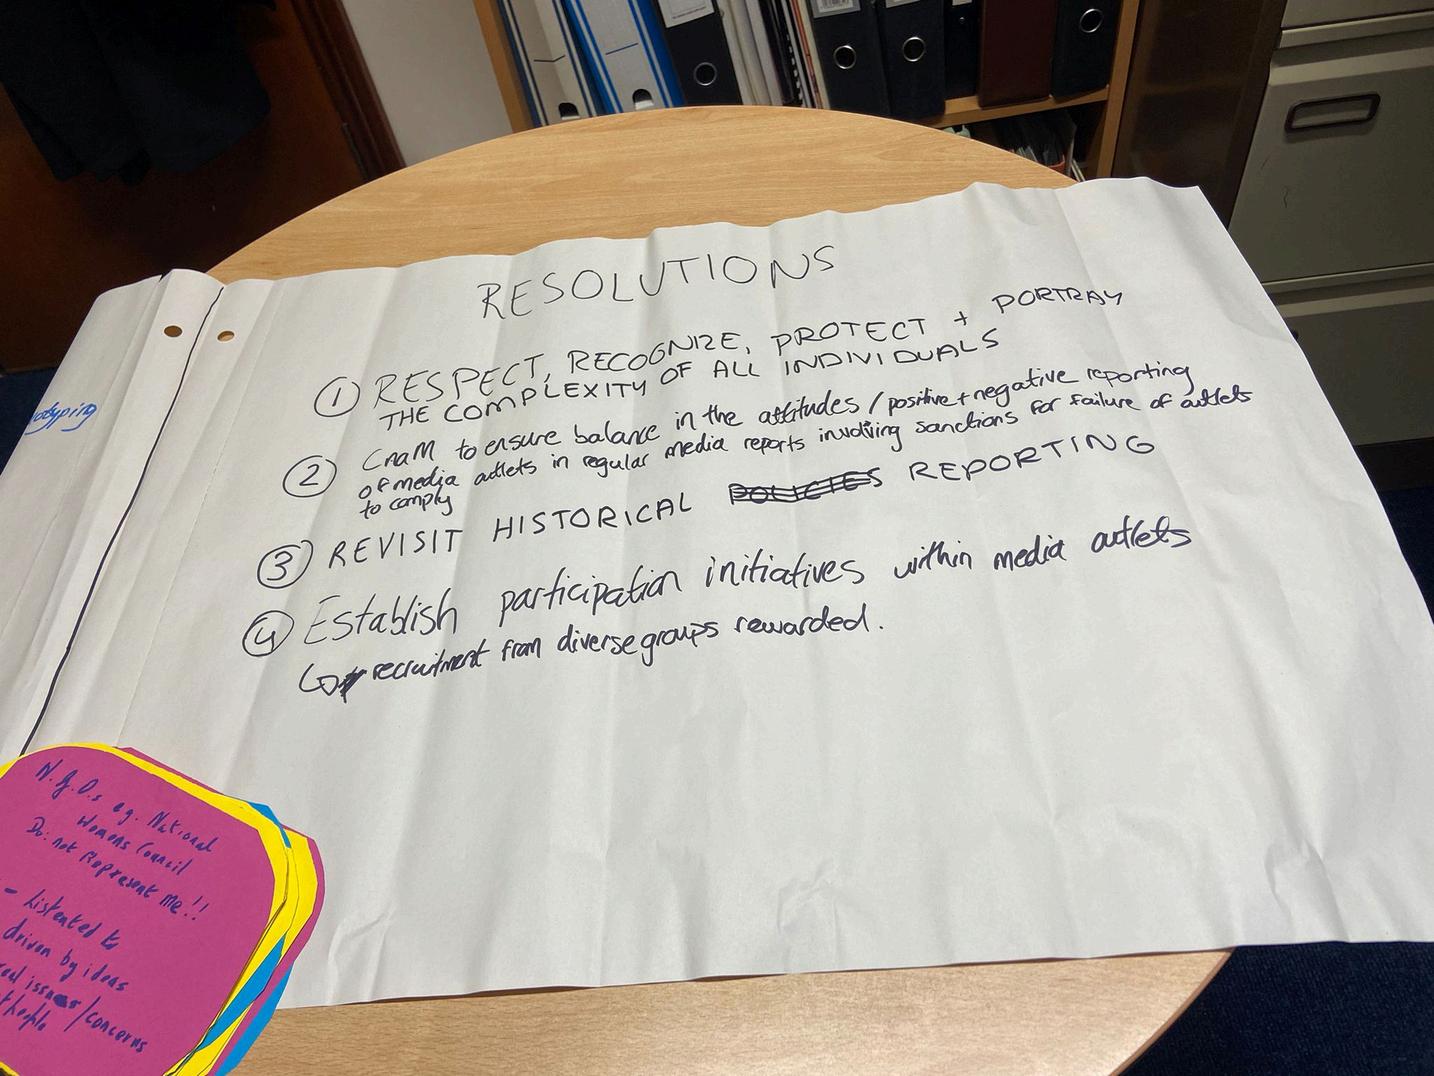 RESOLUTIONS
① RESPECT, RECOGNIZE, PROTECT + PORTRAY
THE COMPLEXITY OF ALL INDIVIDUALS
② CnaM to ensure balance in the attitudes / positive + negative reporting
of media outlets in regular media reports involving sanctions for failure of outlets
to comply
③ REVISIT HISTORICAL POLICIES REPORTING
④ Establish participation initiatives within media outlets
↳ recruitment from diverse groups rewarded.
N.G.O.s eg. National
Womens Council
Do: not Represent me!!
- Listented to
driven by ideas
issues / concerns
people